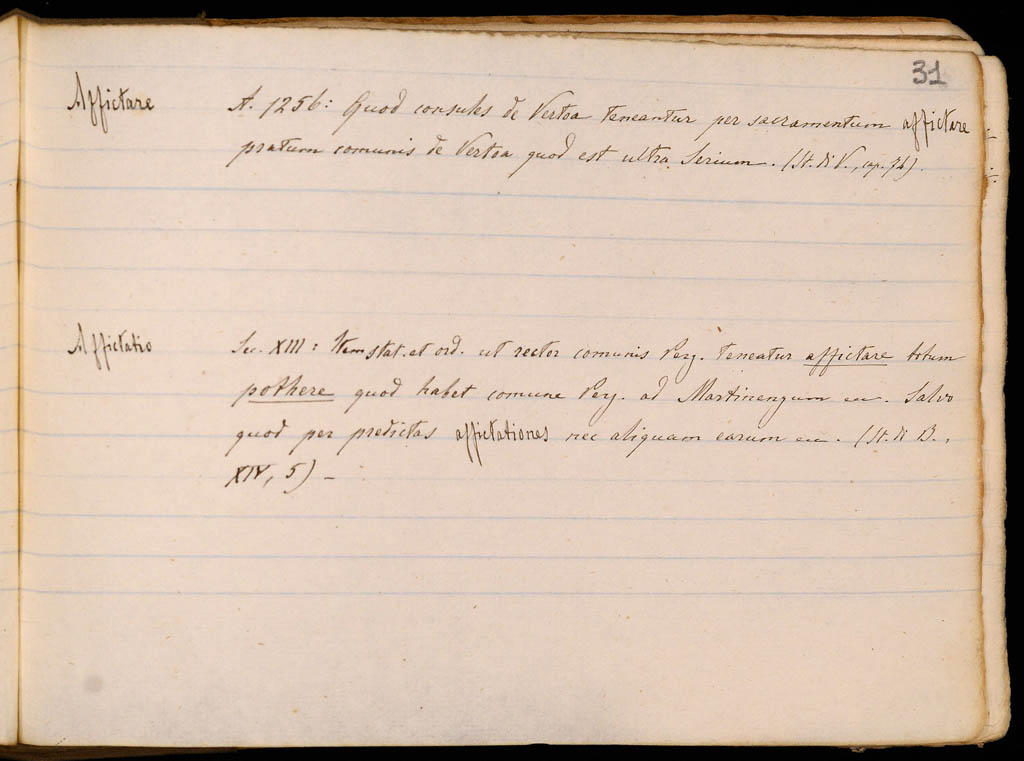 31
Affictare A. 1256: Quod consules de Vertoa teneantur per sacramentum affictare
pratum comunis de Vertoa quod est ultra Serium. (St. di V., cap. 76).
Affictatio Sec. XIII: Item stat. et ord. ut rector comunis Perg. teneatur affictare totum
pothere quod habet comune Perg. ad Martinengum ecc. Salvo
quod per predictas affictationes nec aliquam earum ecc. (St. di B.,
XIV, 5) –